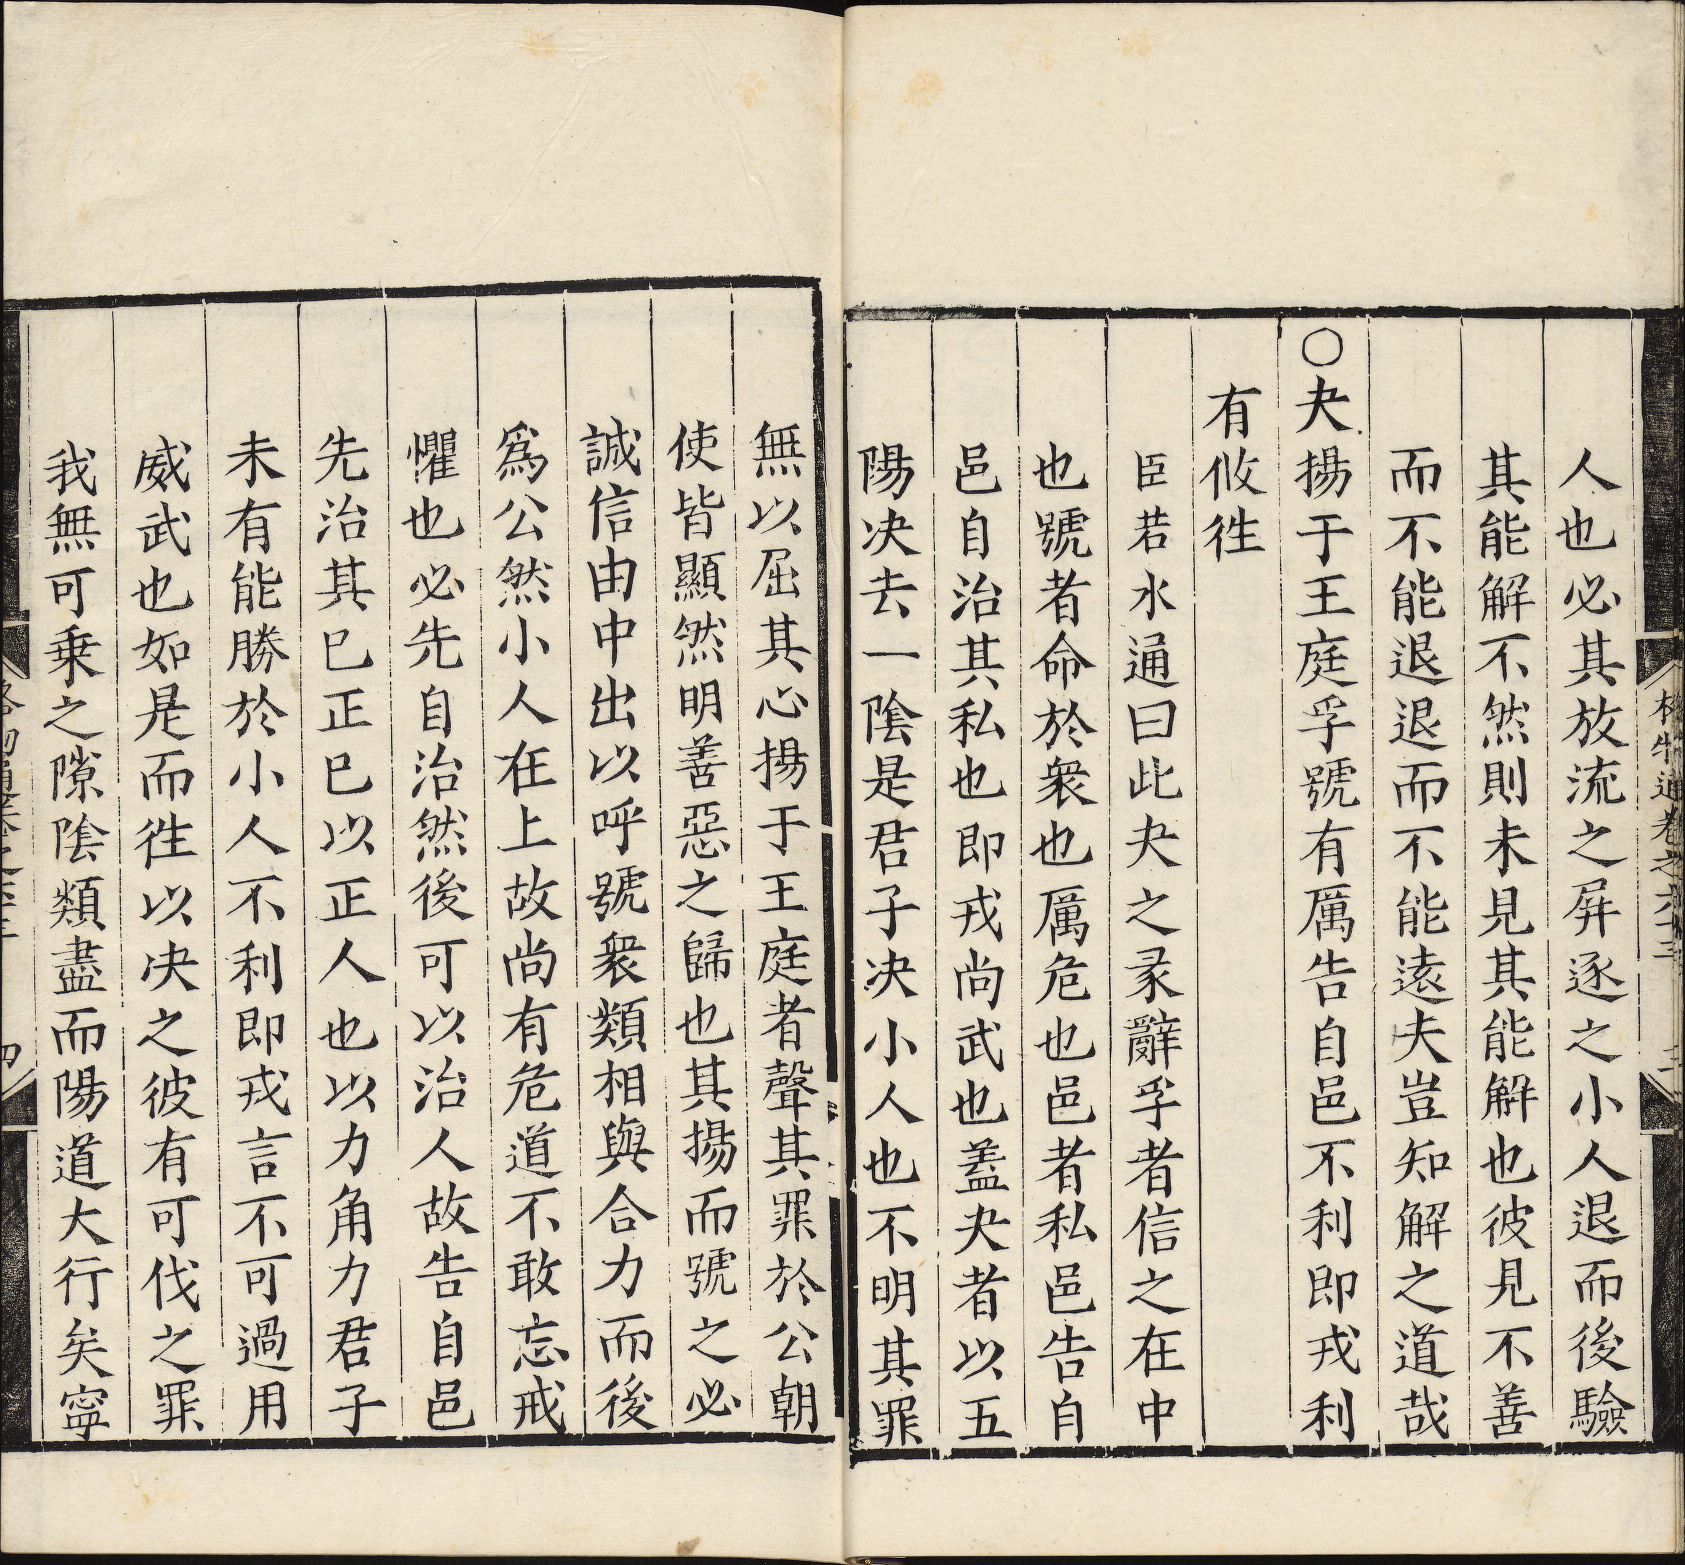 格物通卷之六十三 三
人也必其放流之屏逐之小人退而後驗
其能解不然則未見其能解也彼見不善
而不能退退而不能遠夫豈知解之道哉
○夬揚于王庭孚號有厲告自邑不利即戎利
有攸往
臣若水通曰此夬之彖辭孚者信之在中
也號者命於衆也厲危也邑者私邑告自
邑自治其私也即戎尚武也蓋夬者以五
陽决去一陰是君子决小人也不明其罪
無以屈其心揚于王庭者聲其罪於公朝
使皆顯然明善惡之歸也其揚而號之必
誠信由中出以呼號衆類相與合力而後
爲公然小人在上故尚有危道不敢忘戒
懼也必先自治然後可以治人故告自邑
先治其已正已以正人也以力角力君子
未有能勝於小人不利即戎言不可過用
威武也如是而徃以决之彼有可伐之罪
我無可乗之隙陰類盡而陽道大行矣寧
四